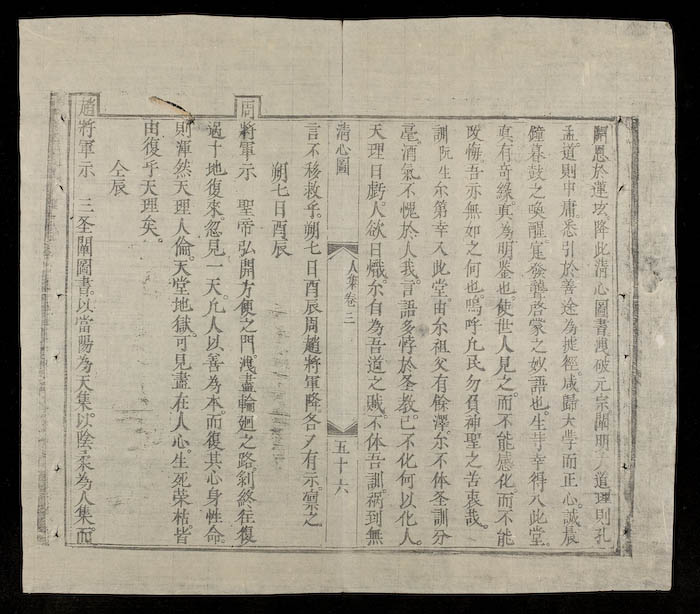 嗣恩於蓮玹。降此清心圖書。洩破元宗。闡明大道理。則孔
孟。道則中庸。悉引於善途。為捷徑。咸歸大學而正心。誠晨
鐘暮鼓之喚醒。寔發聾啓蒙之妙語也。生等幸得入此堂。
真有奇緣。真為明鉴也。使世人見之而不能感化而不能
改悔。吾亦無如之何也。嗚呼。凡民勿負神聖之苦衷哉。
訓阮生。尔第幸入此堂。由尔祖父有餘澤。尔不体圣訓分
毫。酒氣不愧於人我。言語多悖於圣教。己不化。何以化人。
天理日虧。人欲日熾。尔自為吾道之賊。不体吾訓。禍到無
清心圖
人集卷三
五十六
言不移救乎。朔七日酉辰。周趙將軍降。各又有示。禀之
朔七日酉辰
周將軍示 聖帝弘開方便之門。洩盡輪廻之路。剥終往復
過十地復來。忽見一天。凡人以善為本。而復其心身性命
則渾然天理人倫。天堂地獄。可見盡在人心。生死榮枯。皆
由復乎天理矣。
仝辰
趙將軍示 三圣闡圖書。以當陽為天集。以陰柔為人集而